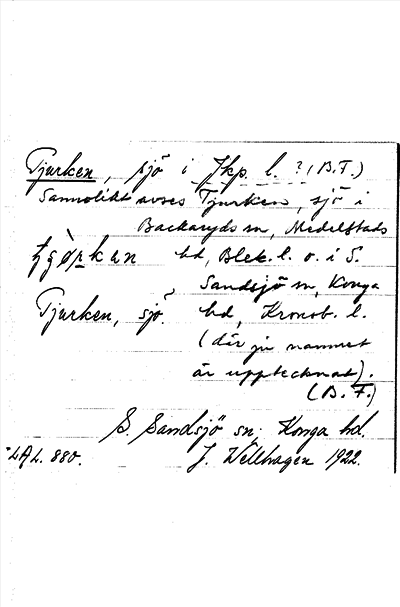 Tjurken, sjö i Jkp. l. ? (B.F.)
Sannolikt avses Tjurken, sjö i
Backaryds sn, Medelstads
hd, Blek. l. o. i S.
Sandsjö sn, Konga
Tjurken, sjö. hd, Kronob. l.
(där ju namnet
är upptecknat).
(B.F.)
S. Sandsjö sn. Konga hd.
LAL. 880. J. Wellhagen 1922.